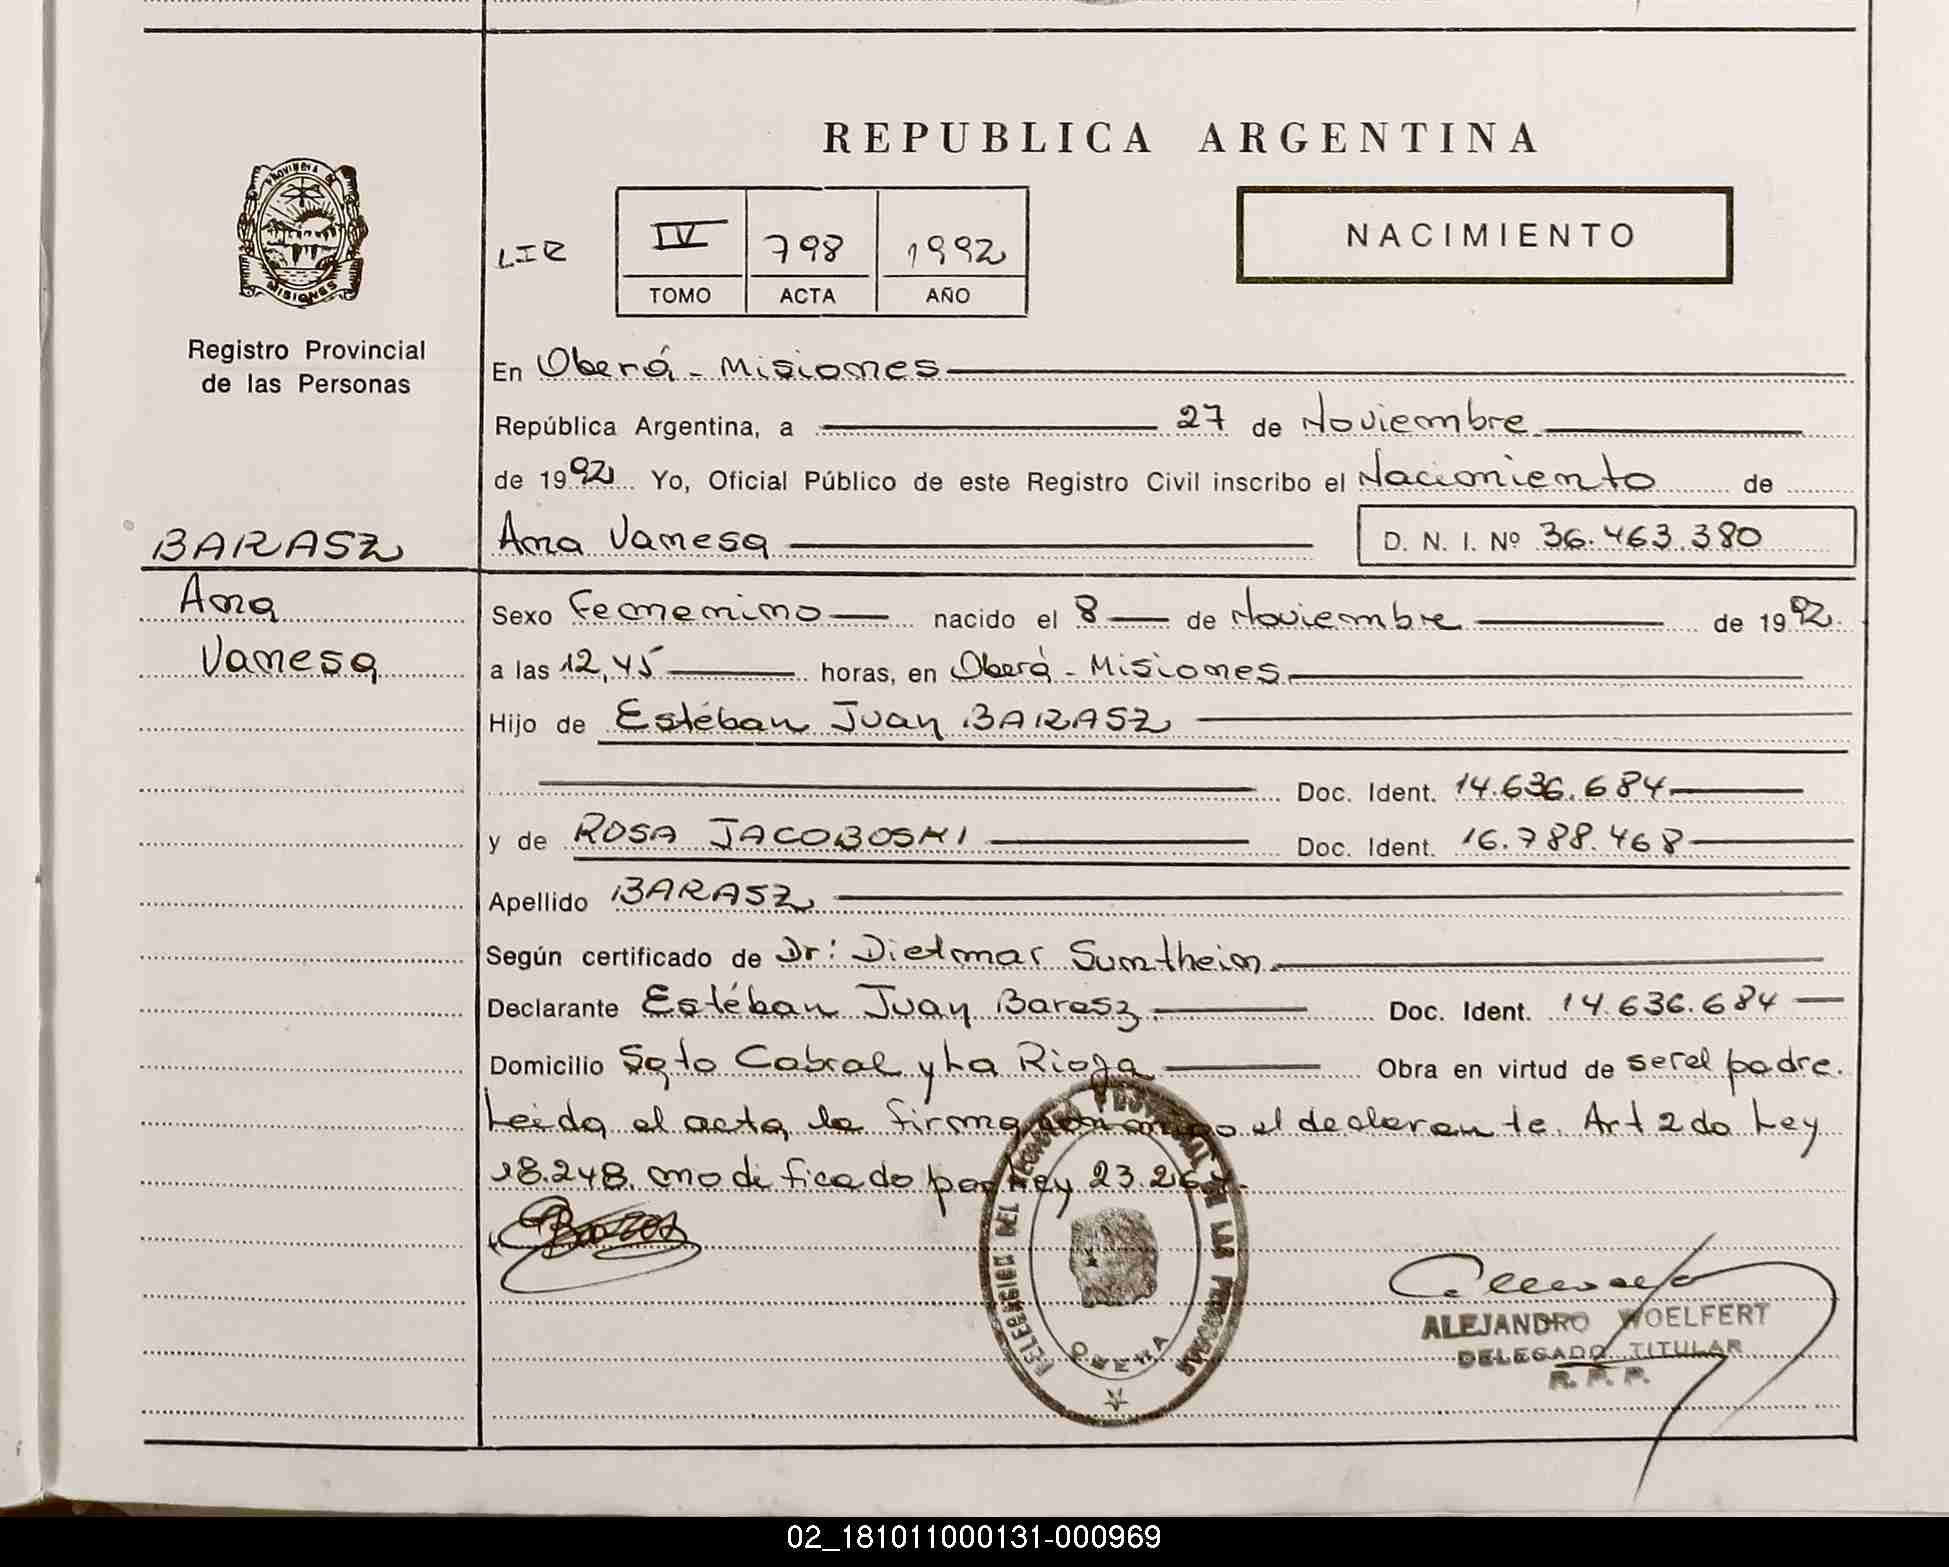 REPUBLICA ARGENTINA
PROVINCIA DE
MISIONES
Registro Provincial
de las Personas
LIB
IV 798 1992
TOMO ACTA AÑO
NACIMIENTO
En Oberá - Misiones
República Argentina, a 27 de Noviembre
de 1992 Yo, Oficial Público de este Registro Civil inscribo el Nacimiento de
BARASZ
Ana
Vanesa
Ana Vanesa D. N. I. Nº 36.463.380
Sexo Femenino nacido el 8 de Noviembre de 1992.
a las 12,45 horas, en Oberá - Misiones
Hijo de Estéban Juan BARASZ
Doc. Ident. 14.636.684
y de ROSA JACOBOSKI Doc. Ident. 16.788.468
Apellido BARASZ
Según certificado de Dr: Dietmar Suntheim
Declarante Estéban Juan Barasz Doc. Ident. 14.636.684
Domicilio Sgto Cabral y La Rioja Obra en virtud de ser el padre.
Leida el acta la firma conmigo el declarante. Art 2do Ley
18.248. modificado por Ley 23.264.
DELEGACION DEL REGISTRO PROVINCIAL DE LAS PERSONAS
OBERA
ALEJANDRO WOELFERT
DELEGADO TITULAR
R. P. P.
02_181011000131-000969